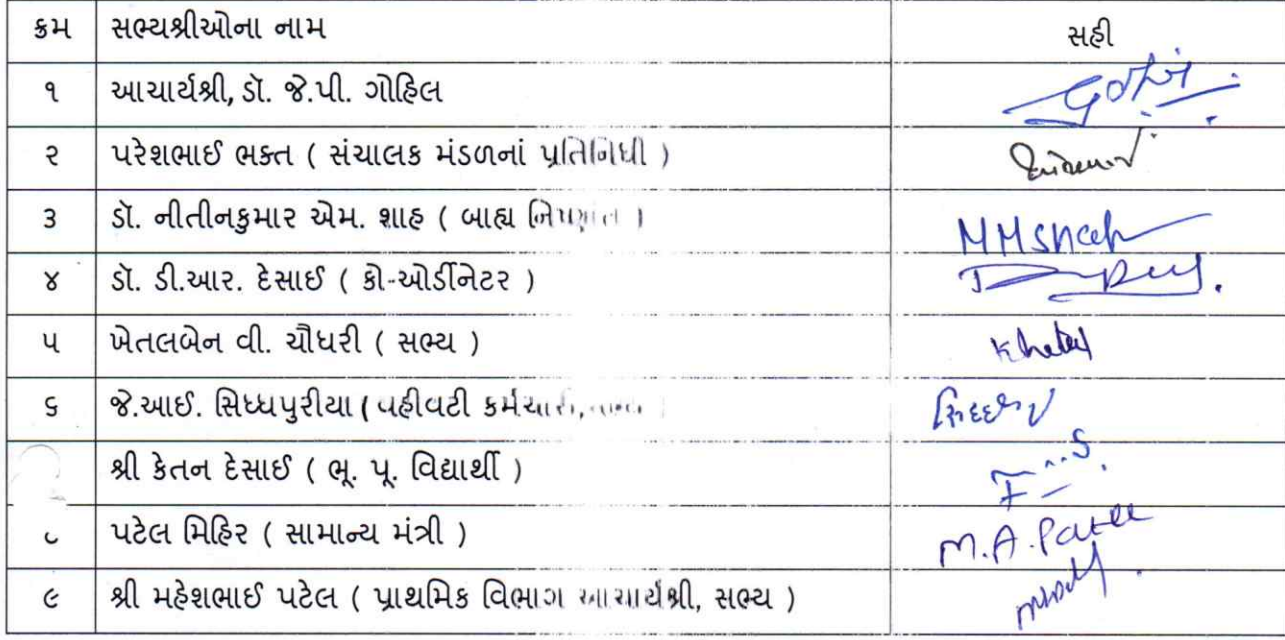 ક્રમ સભ્યશ્રીઓના નામ સહી
૧ આચાર્યશ્રી, ડૉ. જે.પી. ગોહિલ
૨ પરેશભાઈ ભક્ત ( સંચાલક મંડળનાં પ્રતિનિધી )
૩ ડૉ. નીતીનકુમાર એમ. શાહ ( બાહ્ય નિષ્ણાત ) NMShah
૪ ડૉ. ડી.આર. દેસાઈ ( કો-ઓર્ડીનેટર )
૫ ખેતલબેન વી. ચૌધરી ( સભ્ય ) Khetal
૬ જે.આઈ. સિધ્ધપુરીયા ( વહીવટી કર્મચારી, સભ્ય )
શ્રી કેતન દેસાઈ ( ભૂ. પૂ. વિદ્યાર્થી )
૮ પટેલ મિહિર ( સામાન્ય મંત્રી ) M.A.Patel
૯ શ્રી મહેશભાઈ પટેલ ( પ્રાથમિક વિભાગ આચાર્યશ્રી, સભ્ય )